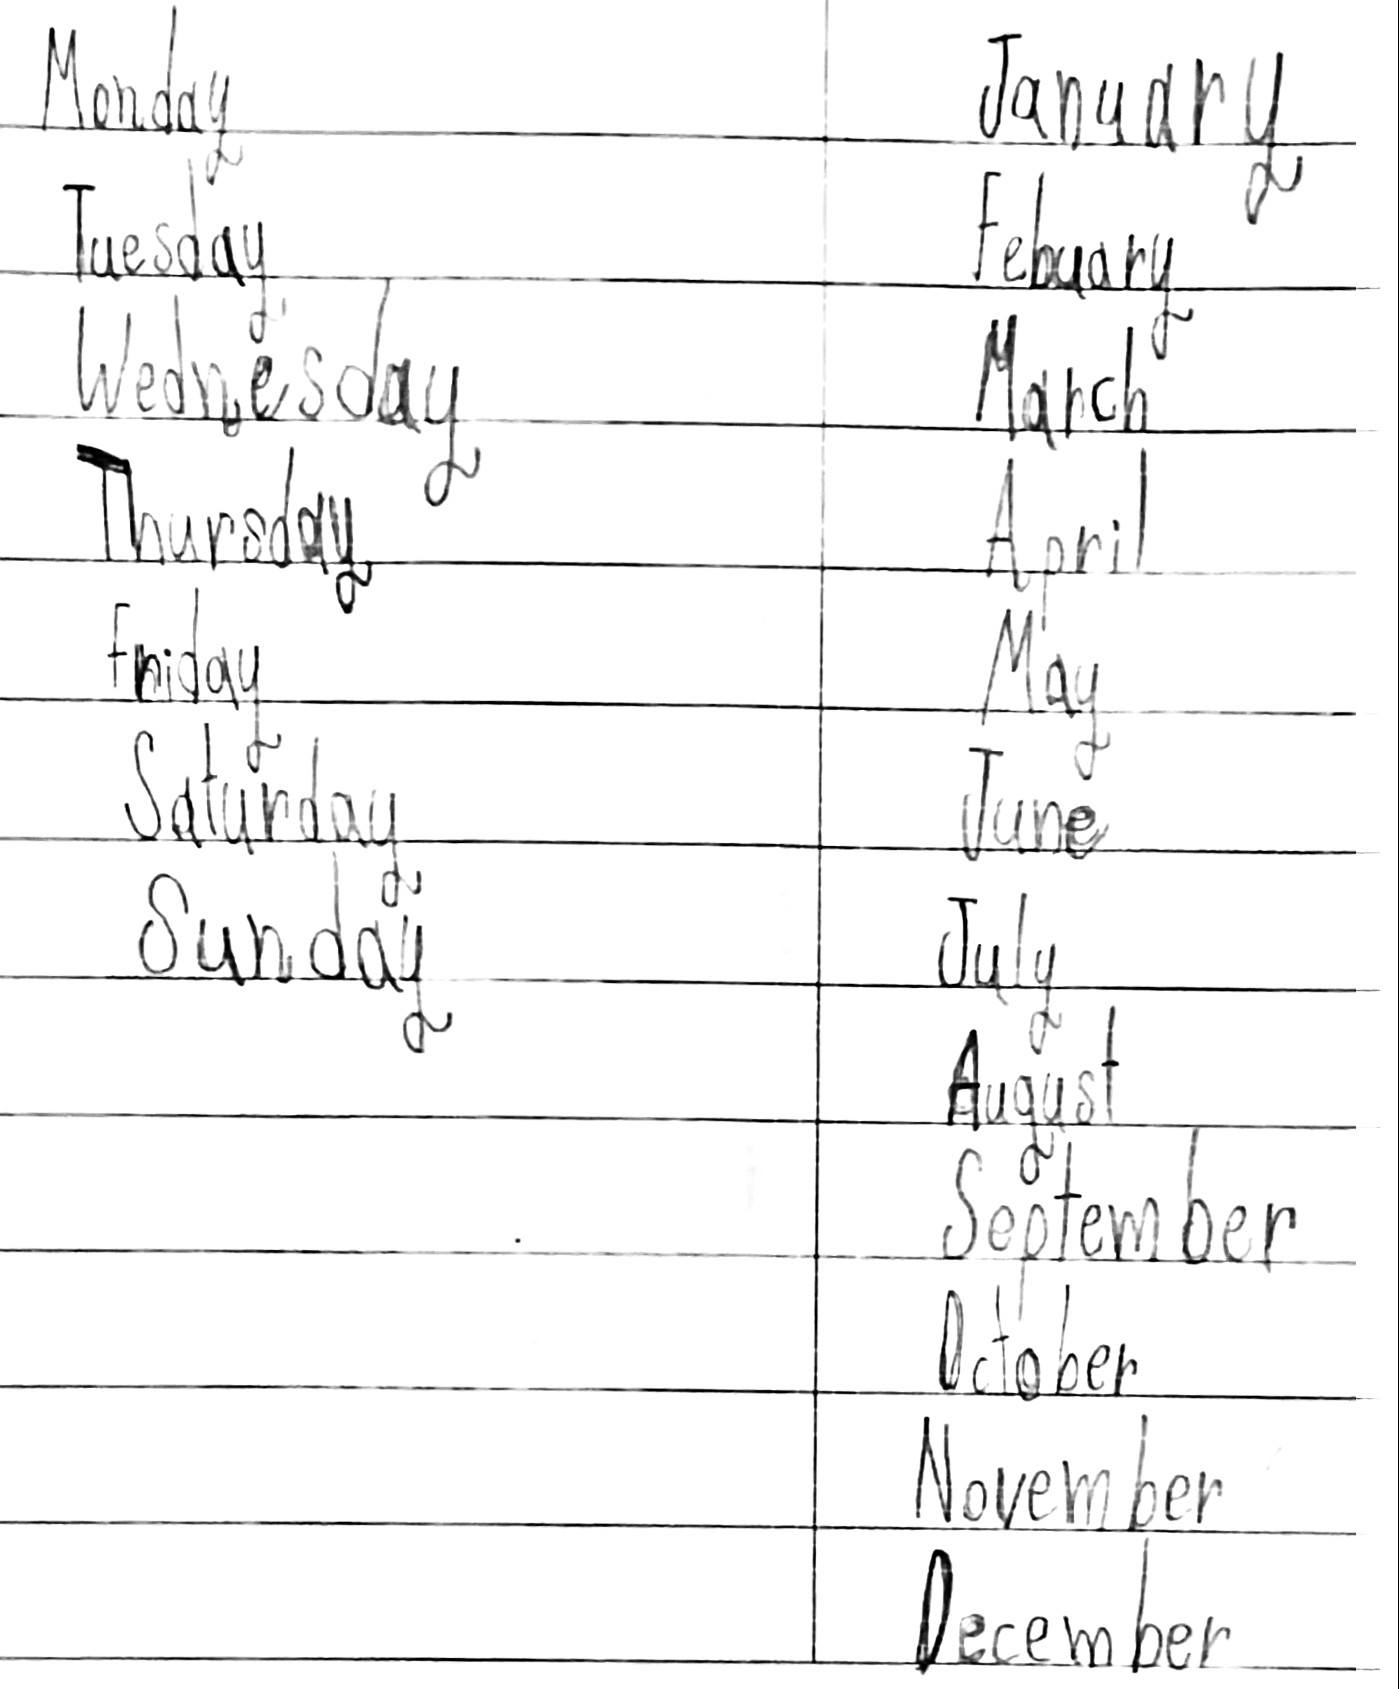 Monday
Tuesday
Wednesday
Thursday
Friday
Saturday
Sunday
January
Febuary
March
April
May
June
July
August
September
October
November
December